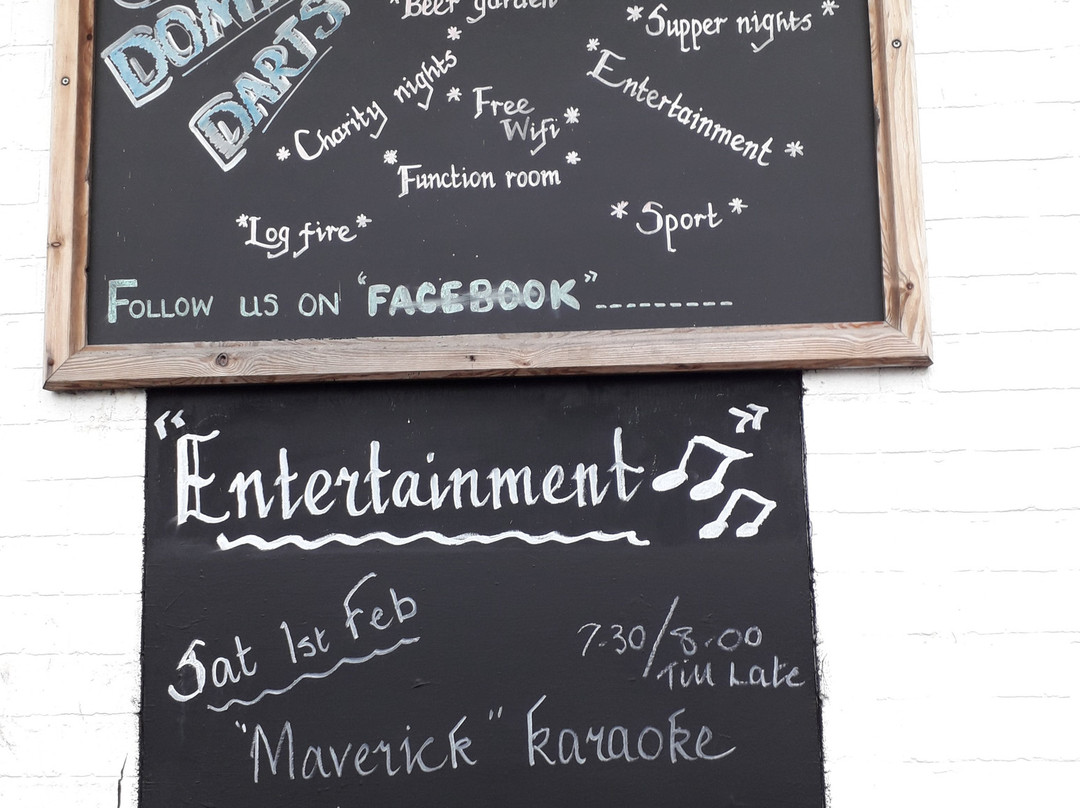 DARTS
*Beer garden
*Supper nights*
*Charity nights*
*Free
Wifi*
*Entertainment*
*Function room*
*Log fire*
*Sport*
FOLLOW US ON "FACEBOOK"---------
"Entertainment"
Sat 1st Feb
7.30/8.00
Till Late
"Maverick" karaoke